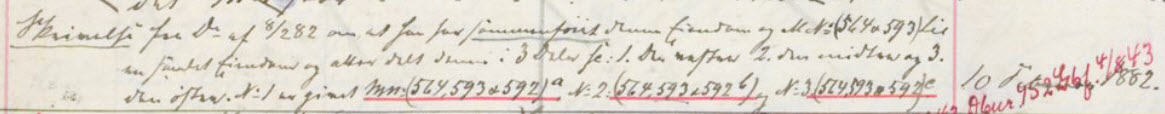 Skrivelse fra Do af 8/2 82 om, at han har sammenføiet denne Eiendom og M No (564 & 593) til
en samlet Eiendom og atter delt denne i 3 Dele se: 1. den vestre 2. den midtre og 3.
den östre. No 1 er givet Mnr: (564, 593 & 592) a No 2: (564, 593 & 592 b), og No 3 (564, 593 & 592) c 10 1882.